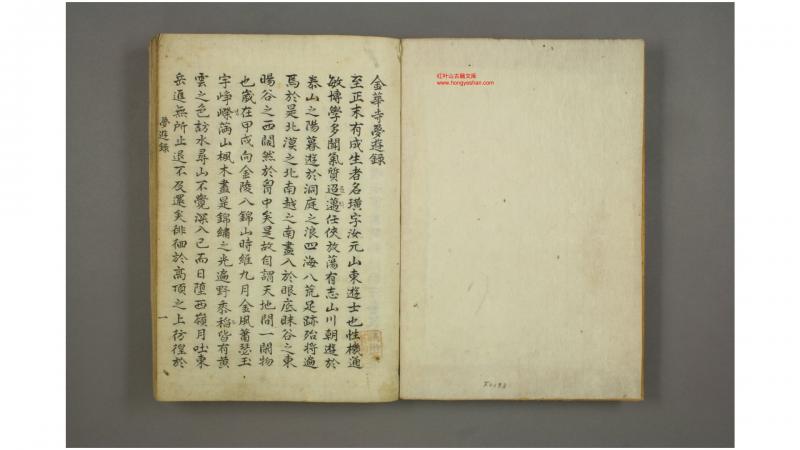 金華寺夢遊錄
至正末有成生者名璜字汝元山東遊士也性機通
敏博學多聞氣質迢邁任俠放蕩有志山川朝遊於
泰山之陽暮遊於洞庭之浪四海八荒足跡殆將遍
焉於是北漠之北南越之南盡入於眼底昧谷之東
暘谷之西闊然於胷中矣是故自謂天地間一閑物
也歲在甲戌向金陵八錦山時維九月金風蕭瑟玉
宇崢嶸滿山楓木盡是錦繡之光遍野黍稻皆有黃
雲之色訪水尋山不覺深入已而日墮西嶺月吐東
岳進無所止退不及還矣徘徊於高頂之上彷徨於
夢遊錄
一
红叶山古籍文库
www.hongyeshan.com